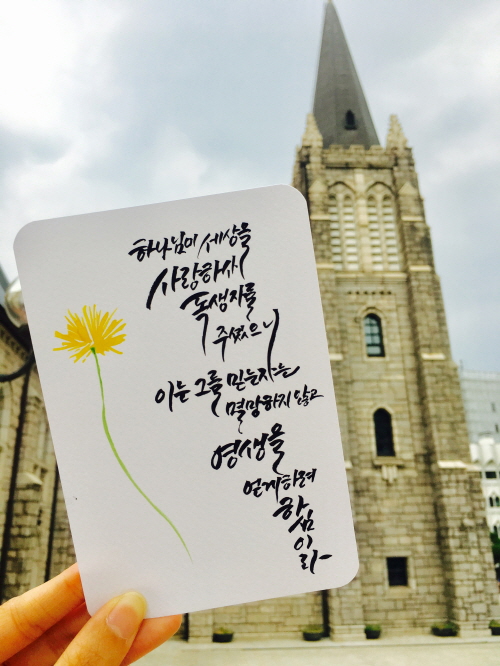 하나님이 세상을
사랑하사
독생자를
주셨으니
이는 그를 믿는자는
멸망하지 않고
영생을
얻게하려
하심
이라